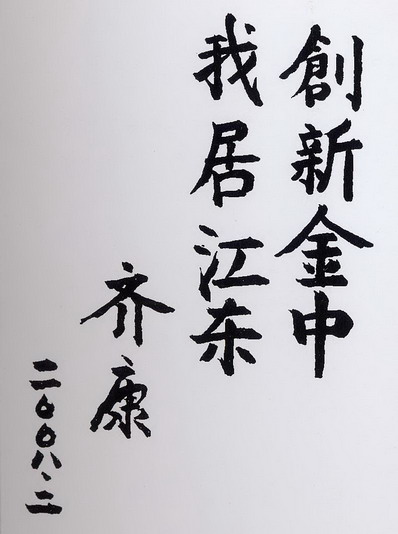 創新金中
我居江东
齐康
二〇〇八.二